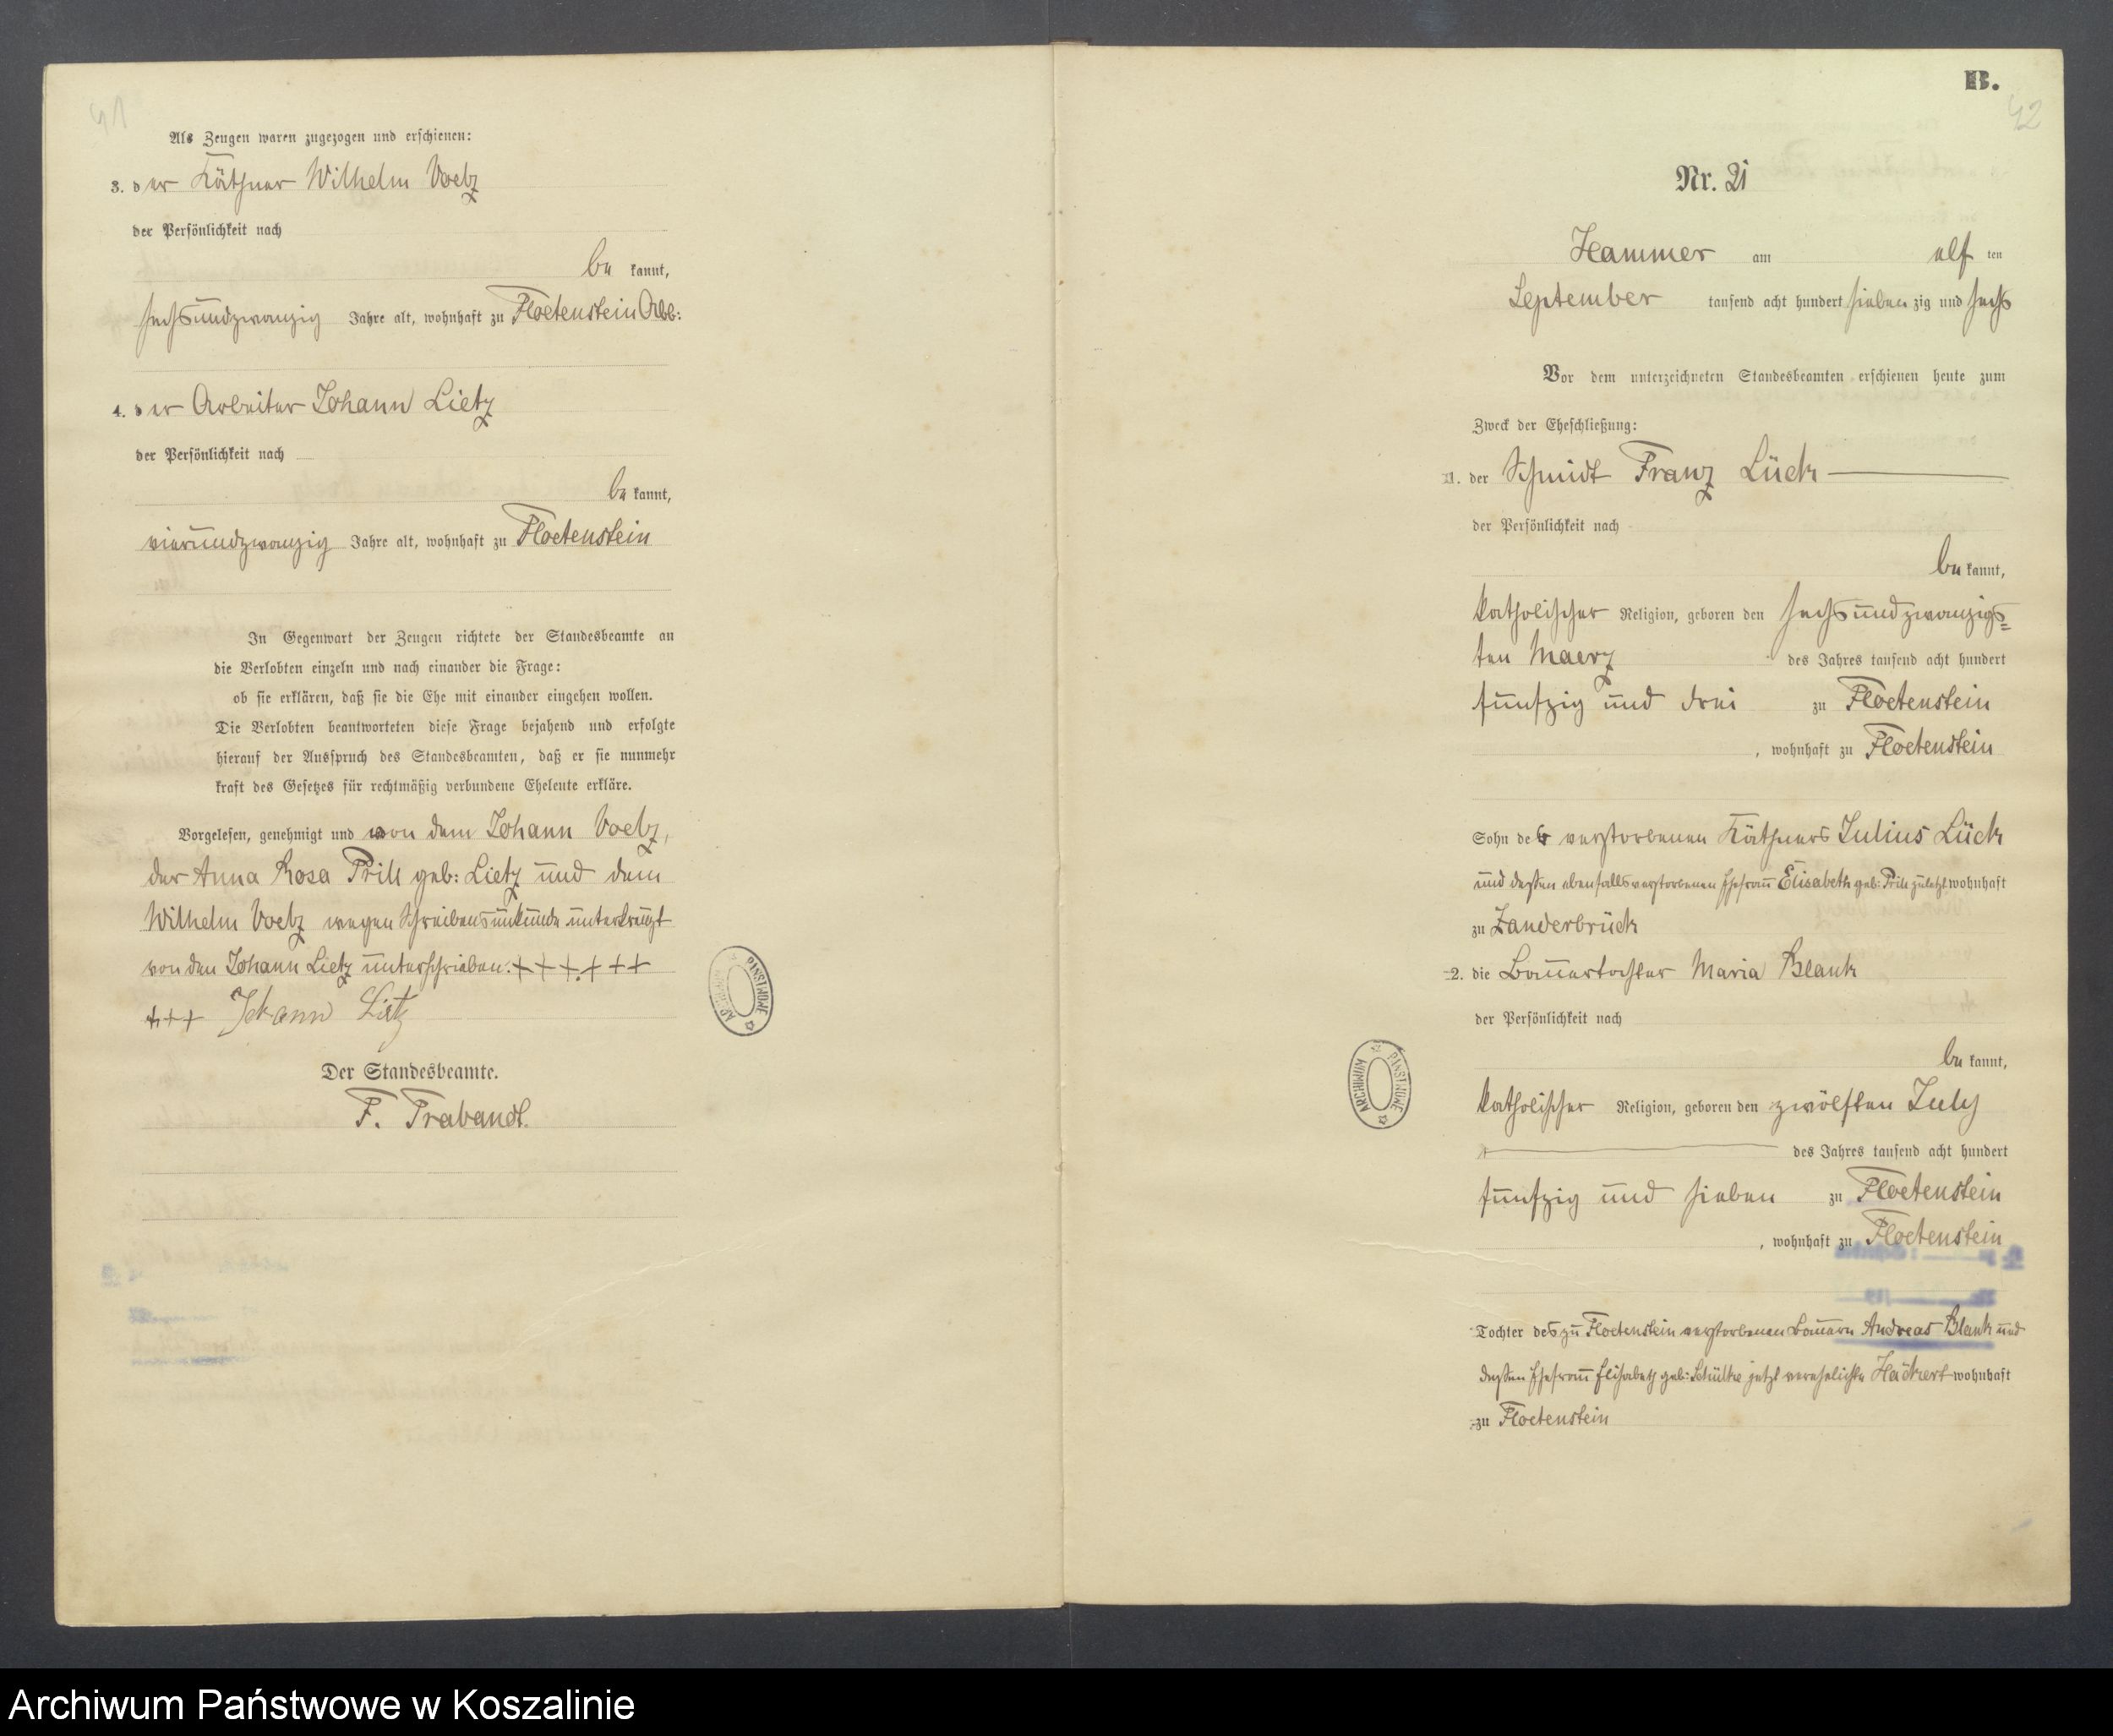 41
Als Zeugen waren zugezogen und erschienen:
3. der Käthner Wilhelm Voelz
der Persönlichkeit nach
be kannt,
sechsundzwanzig Jahre alt, wohnhaft zu Floetenstein Abb:
4. der Arbeiter Johann Lietz
der Persönlichkeit nach
be kannt,
vierundzwanzig Jahre alt, wohnhaft zu Floetenstein
In Gegenwart der Zeugen richtete der Standesbeamte an
die Verlobten einzeln und nach einander die Frage:
ob sie erklären, daß sie die Ehe mit einander eingehen wollen.
Die Verlobten beantworteten diese Frage bejahend und erfolgte
hierauf der Ausspruch des Standesbeamten, daß er sie nunmehr
kraft des Gesetzes für rechtmäßig verbundene Eheleute erkläre.
Vorgelesen, genehmigt und von dem Johann Voelz,
der Anna Rosa Prill geb: Lietz und dem
Wilhelm Voelz wegen Schreibensunkunde unterkreuzt
von den Johann Lietz unterschrieben. + + + . + + +
+++ Johann Lietz
Der Standesbeamte.
F. Prabandt.
ARCHIWUM PAŃSTWOWE
B.
42
Nr. 21
Hammer am elf ten
September tausend acht hundert sieben zig und sechs
Vor dem unterzeichneten Standesbeamten erschienen heute zum
Zweck der Eheschließung:
1. der Schmidt Franz Lück
der Persönlichkeit nach
be kannt,
katholischer Religion, geboren den sechsundzwanzigs=
ten Maerz des Jahres tausend acht hundert
fünfzig und drei zu Floetenstein
, wohnhaft zu Floetenstein
Sohn des verstorbenen Käthners Julius Lück
und dessen ebenfalls verstorbenen Ehefrau Elisabeth geb: Prill zuletzt wohnhaft
zu Zanderbrück
2. die Bauertochter Maria Blank
der Persönlichkeit nach
be kannt,
katholischer Religion, geboren den zwölften July
des Jahres tausend acht hundert
fünfzig und sieben zu Floetenstein
, wohnhaft zu Floetenstein
Tochter des zu Floetenstein verstorbenen Bauern Andreas Blank und
dessen Ehefrau Elisabeth geb: Schülke jetzt verehelichte Häckert wohnhaft
zu Floetenstein
ARCHIWUM PAŃSTWOWE
Archiwum Państwowe w Koszalinie